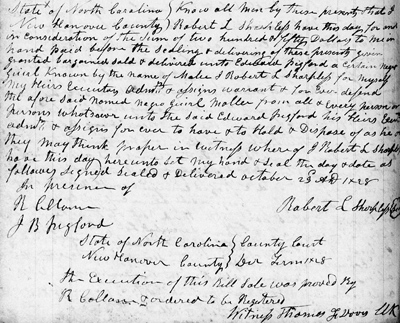 State of North Carolina } Know all men by these presents that I
New Hanover County } Robert L Sharpless have this day for and
in consideration of the Sum of two hundred & fifty Dollars to me in
hand paid before the Sealing & delivering of these presents given
granted bargained sold & delivered unto Edward Pigford a certain negro
guirl Known by the name of I Robert L Sharpless for myself
My Heirs Executors Admrs & assigns warrant & for Ever defend
the afore said Named negro guirl from all & Every person or
persons whatsover unto the Said Edward Pigford his Heirs Exers
admrs & assigns for ever to have & to Hold & Dispose of as he or
they may think proper in witness where of I Robert L Sharpless
have this day hereunto set my hand & Seal the day & date as
follows Signed Sealed & Delivered october AD 1828
In presence of
R Robert L Sharpless
J B Pigford
State of North Carolina } County Court
New Hanover County } Term 1828
the Execution of this Bill Sale was proved By
R & ordered to be Registered
Witness Thomas F Davis Clk